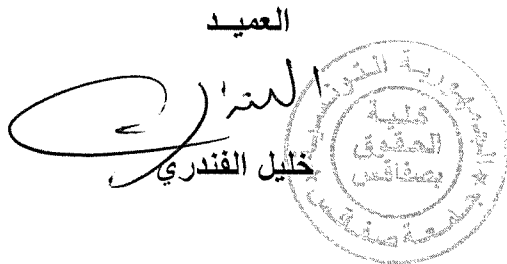 العميد
خليل الفندري
الجمهورية التونسية
كلية
الحقوق
بصفاقس
★ جامعة صفاقس ★